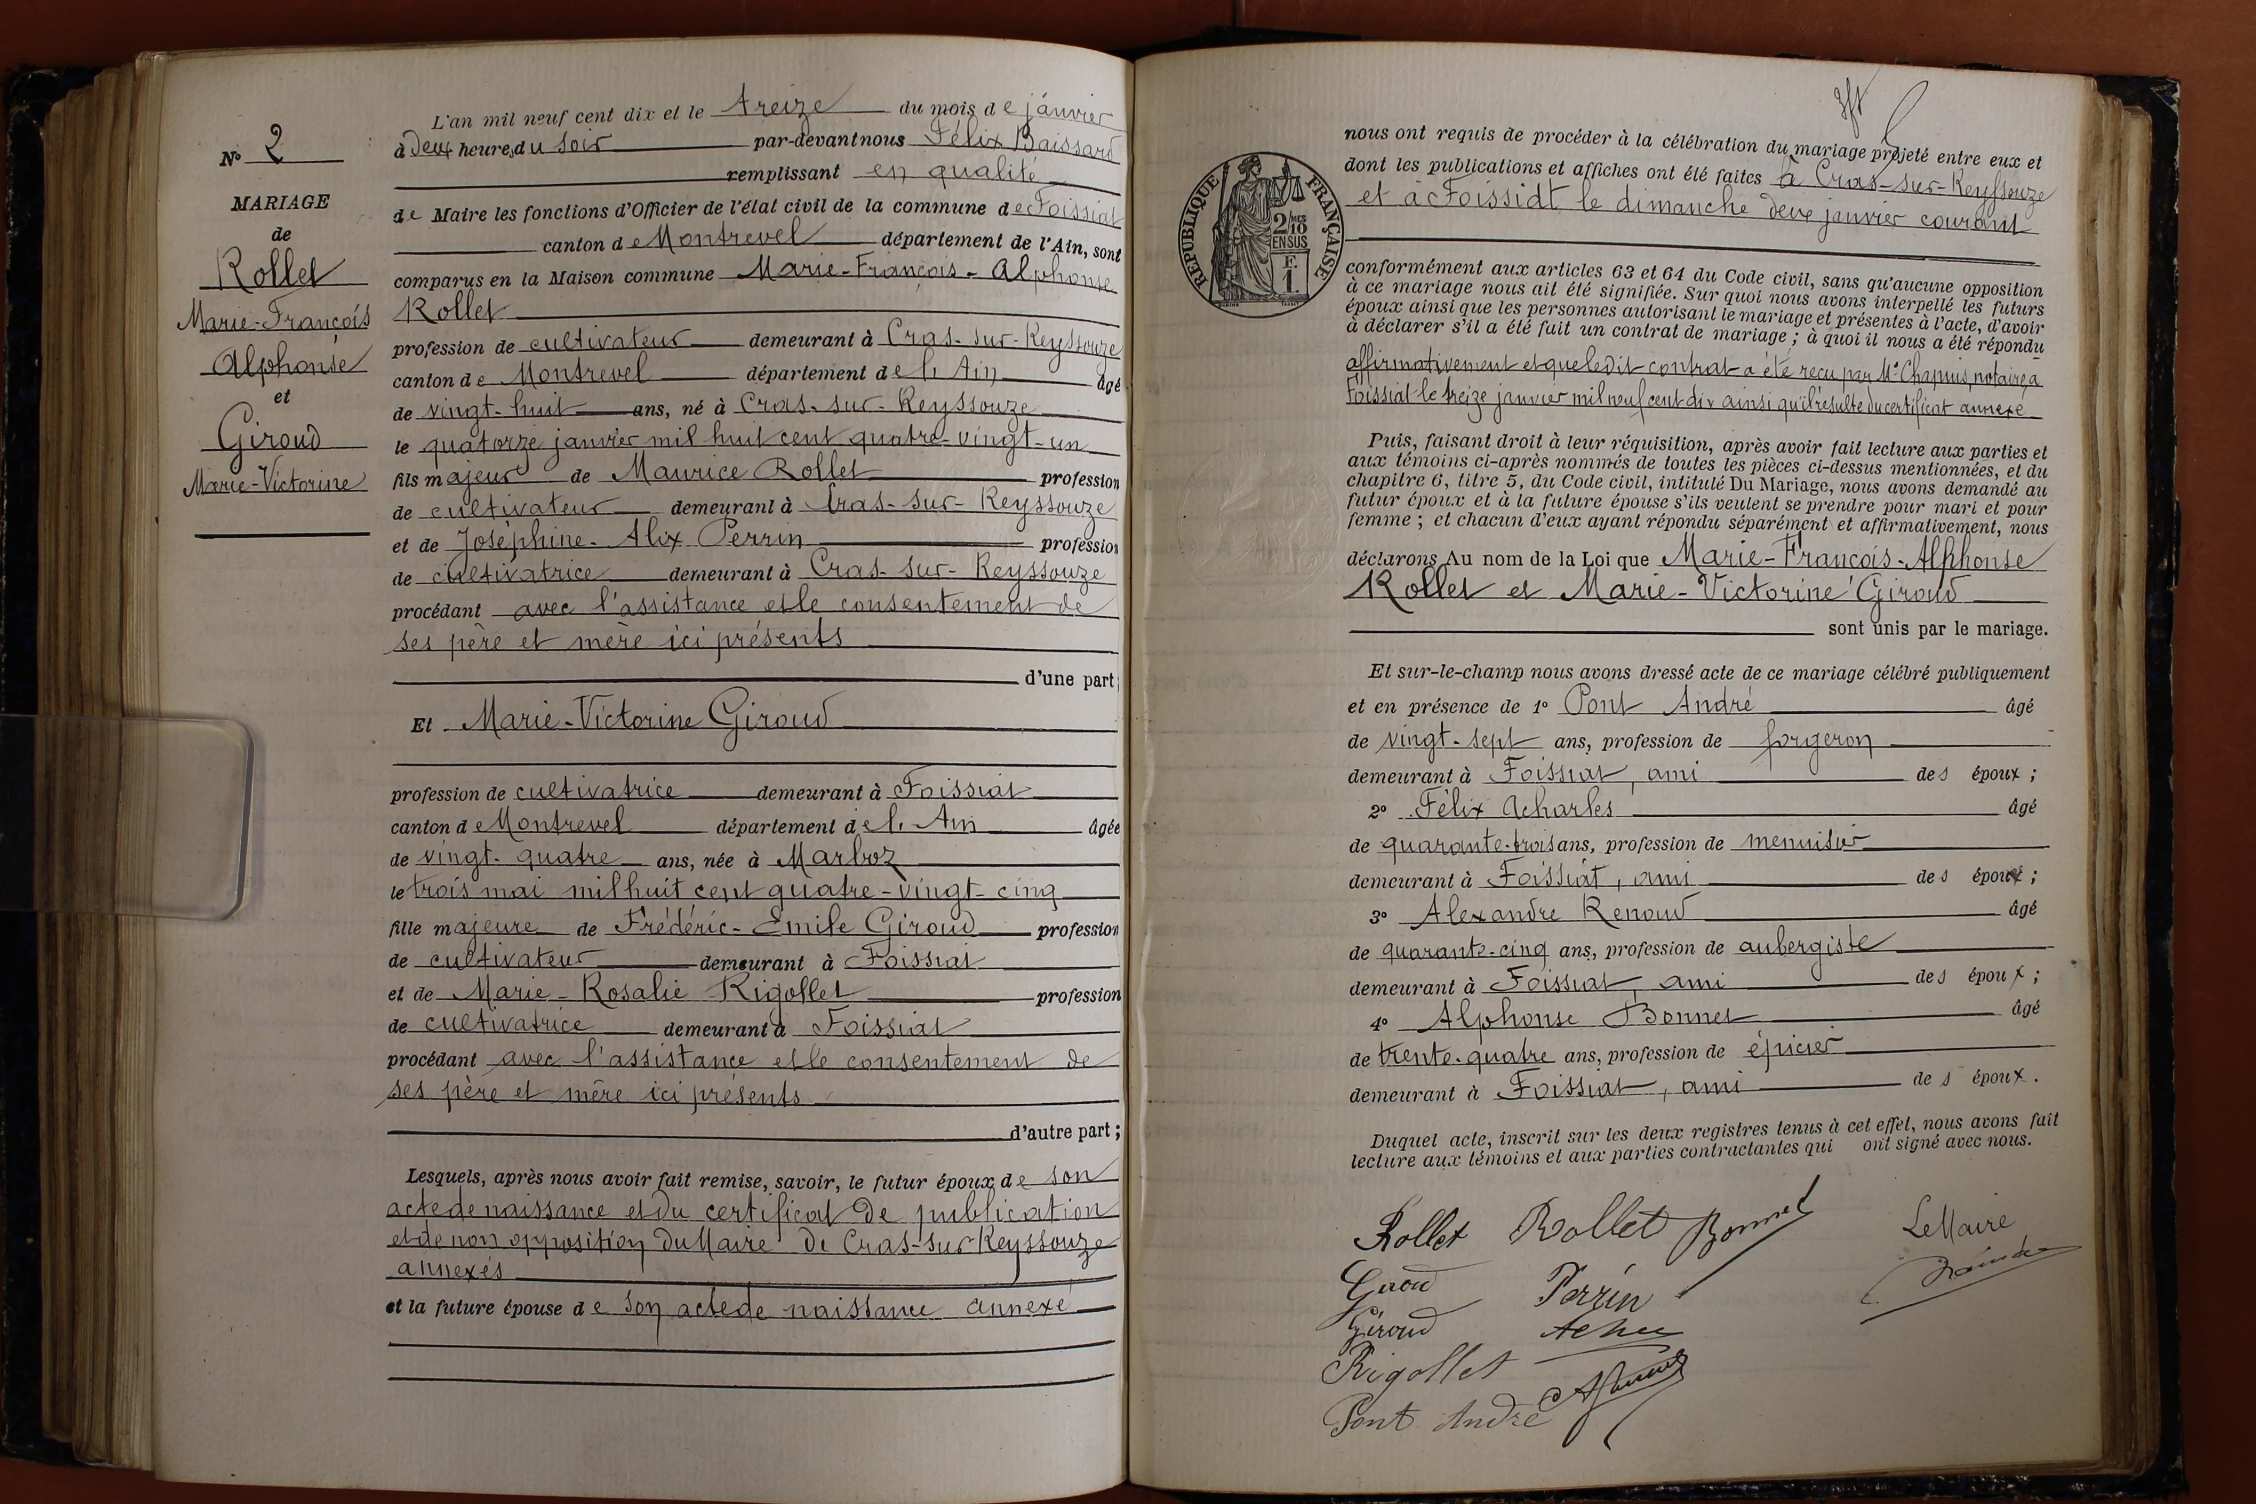 N° 2
MARIAGE
de
Rollet
Marie-François
Alphonse
et
Giroud
Marie-Victorine
L'an mil neuf cent dix et le treize du mois de janvier
à deux heures du soir par-devant nous Félix Baissard
remplissant en qualité
de Maire les fonctions d'Officier de l'état civil de la commune de Foissiat
canton de Montrevel département de l'Ain, sont
comparus en la Maison commune Marie-François-Alphonse
Rollet
profession de cultivateur demeurant à Cras-sur-Reyssouze
canton de Montrevel département de l'Ain âgé
de vingt-huit ans, né à Cras-sur-Reyssouze
le quatorze janvier mil huit cent quatre-vingt-un
fils majeur de Maurice Rollet profession
de cultivateur demeurant à Cras-sur-Reyssouze
et de Joséphine-Alix Perrin profession
de cultivatrice demeurant à Cras-sur-Reyssouze
procédant avec l'assistance et le consentement de
ses père et mère ici présents
d'une part;
Et Marie-Victorine Giroud
profession de cultivatrice demeurant à Foissiat
canton de Montrevel département de l'Ain âgée
de vingt-quatre ans, née à Marboz
le trois mai mil huit cent quatre-vingt-cinq
fille majeure de Frédéric-Emile Giroud profession
de cultivateur demeurant à Foissiat
et de Marie-Rosalie Rigollet profession
de cultivatrice demeurant à Foissiat
procédant avec l'assistance et le consentement de
ses père et mère ici présents
d'autre part;
Lesquels, après nous avoir fait remise, savoir, le futur époux de son
acte de naissance et du certificat de publication
et de non opposition du Maire de Cras-sur-Reyssouze
annexés
et la future épouse de son acte de naissance annexé
nous ont requis de procéder à la célébration du mariage projeté entre eux et
dont les publications et affiches ont été faites à Cras-sur-Reyssouze
et à Foissiat le dimanche deux janvier courant
RÉPUBLIQUE FRANÇAISE
2/10 MES
EN SUS
F.
1.
conformément aux articles 63 et 64 du Code civil, sans qu'aucune opposition
à ce mariage nous ait été signifiée. Sur quoi nous avons interpellé les futurs
époux ainsi que les personnes autorisant le mariage et présentes à l'acte, d'avoir
à déclarer s'il a été fait un contrat de mariage; à quoi il nous a été répondu
affirmativement et que ledit contrat a été reçu par Me Chapuis, notaire à
Foissiat le treize janvier mil neuf cent dix ainsi qu'il résulte du certificat annexé
Puis, faisant droit à leur réquisition, après avoir fait lecture aux parties et
aux témoins ci-après nommés de toutes les pièces ci-dessus mentionnées, et du
chapitre 6, titre 5, du Code civil, intitulé Du Mariage, nous avons demandé au
futur époux et à la future épouse s'ils veulent se prendre pour mari et pour
femme; et chacun d'eux ayant répondu séparément et affirmativement, nous
déclarons Au nom de la Loi que Marie-François-Alphonse
Rollet et Marie-Victorine Giroud
sont unis par le mariage.
Et sur-le-champ nous avons dressé acte de ce mariage célébré publiquement
et en présence de 1° Pont André âgé
de vingt-sept ans, profession de forgeron
demeurant à Foissiat, ami des époux;
2° Félix Acharles âgé
de quarante-trois ans, profession de menuisier
demeurant à Foissiat, ami des époux;
3° Alexandre Renoud âgé
de quarante-cinq ans, profession de aubergiste
demeurant à Foissiat, ami des époux;
4° Alphonse Bonnet âgé
de trente-quatre ans, profession de épicier
demeurant à Foissiat, ami des époux.
Duquel acte, inscrit sur les deux registres tenus à cet effet, nous avons fait
lecture aux témoins et aux parties contractantes qui ont signé avec nous.
Rollet Rollet Bonnet Le Maire
Giroud Perrin
Giroud
Rigollet
Pont André